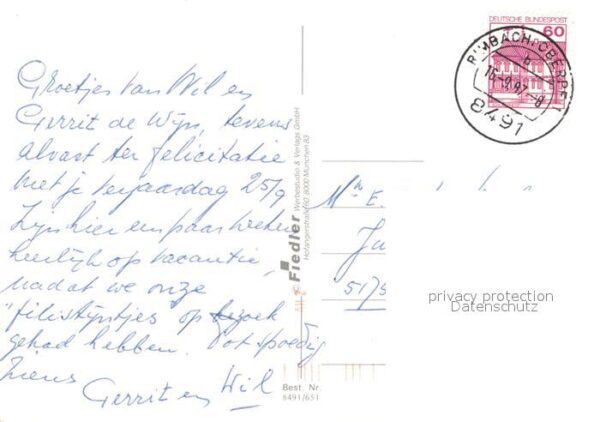 Groetjes van Wil en
Gerrit de Wijn, tevens
alvast ter felicitatie
met je verjaardag 25/9
Zijn hier een paar weken
heerlijk op vacantie,
nadat we onze
"filistijntjes op bezoek
gehad hebben. Tot spoedig
ziens
Gerrit en Wil
Fiedler Werbestudio & Verlags GmbH
8000 München 83
Best. Nr.
8491/651
DEUTSCHE BUNDESPOST
60
RIMBACH, OBERPF
b
8491
E.
privacy protection
Datenschutz